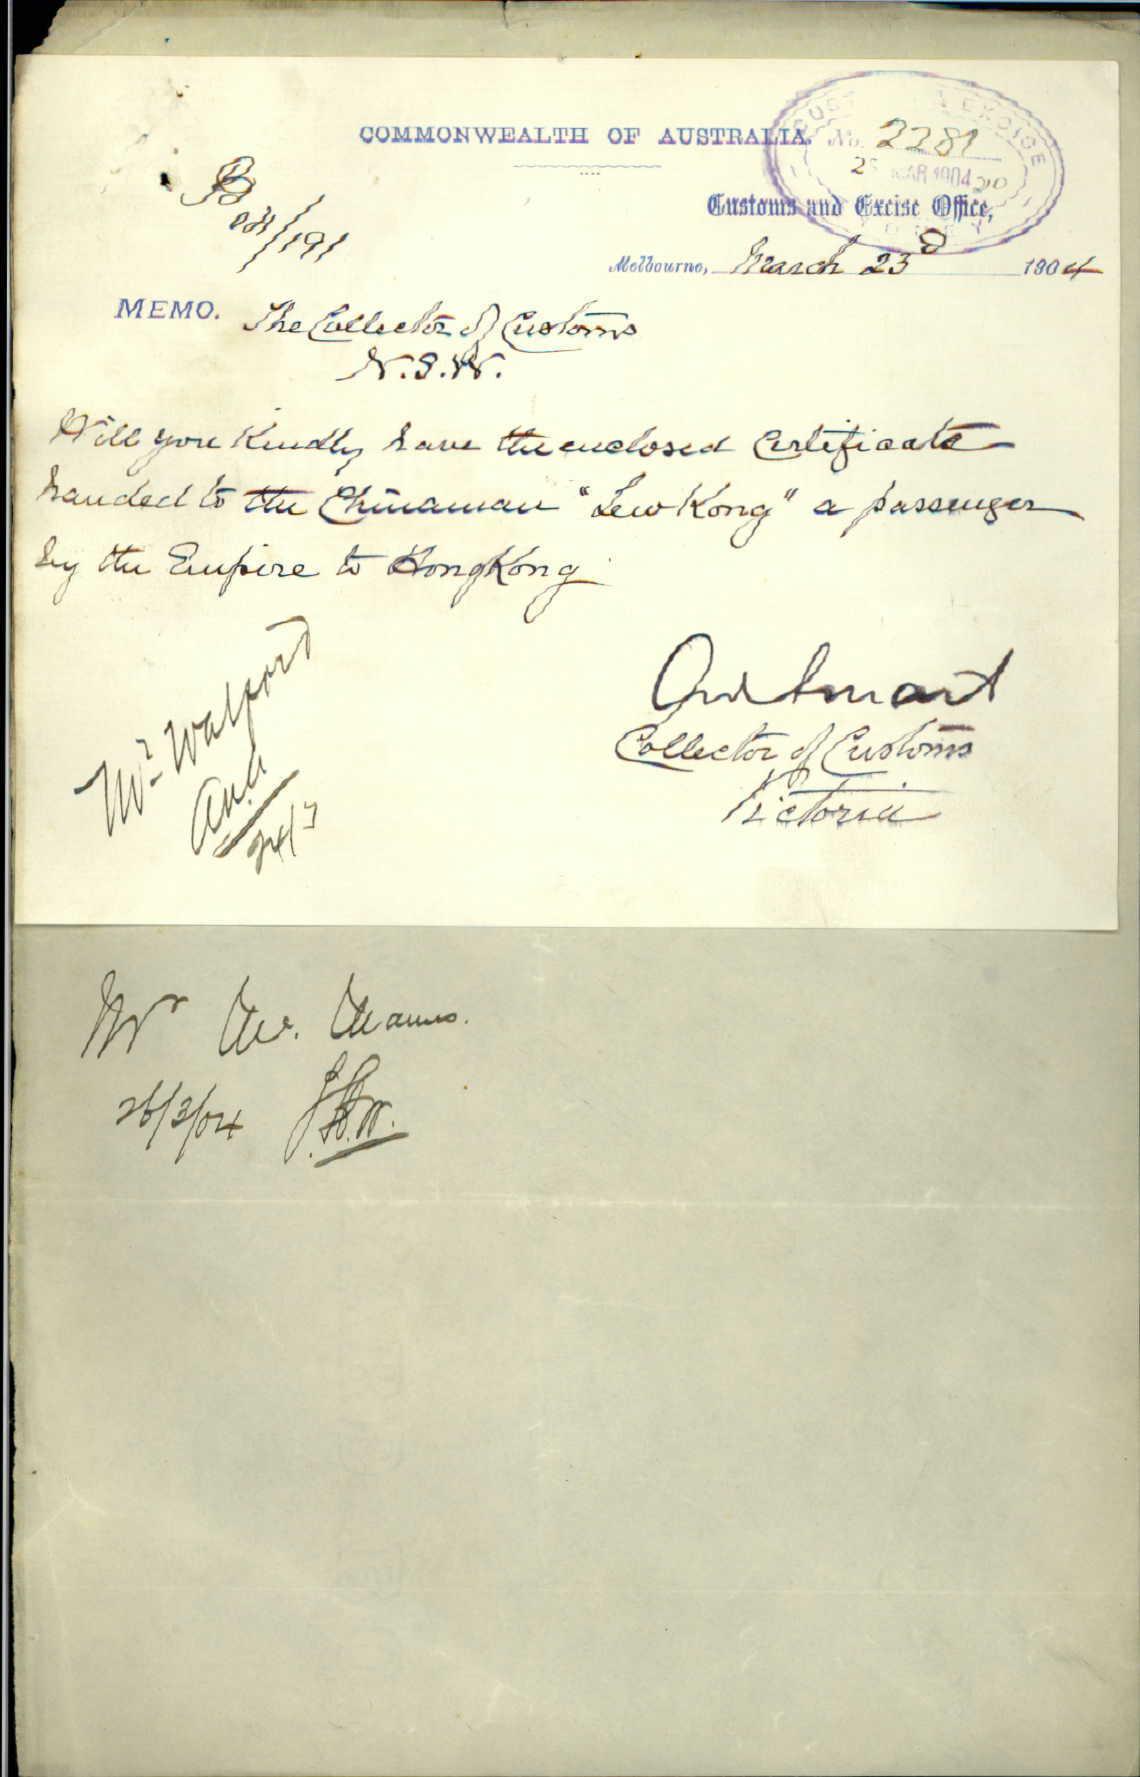 COMMONWEALTH OF AUSTRALIA.
CUSTOMS EXCISE
No. 2281
MAR 1904
B 03/191
Customs and Excise Office,
Melbourne, March 23d 1904
MEMO. The Collector of Customs
N.S.W.
Will you kindly have the enclosed Certificate
handed to the Chinaman "Lew Kong" a passenger
by the Empire to HongKong
Smart
Collector of Customs
Victoria
Mr Walford
24/3
Mr
26/3/04